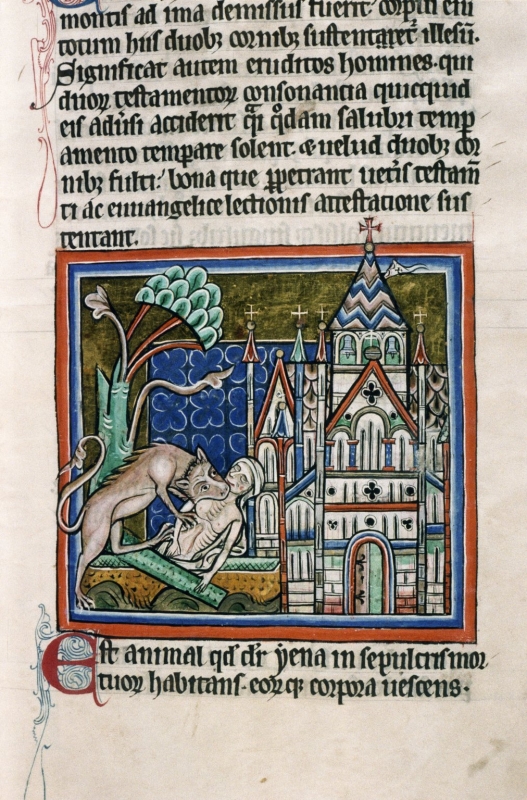 montis ad ima demissus fuerit. corpus eiꝰ
totum hiis duobꝫ cornibꝫ sustentaret illesū.
Significat autem eruditos homines. qui
duoꝝ testamentoꝝ consonancia quicquid
eis adūsi acciderit q̄si q̄dam salubri temp
amento temperare solent. ⁊ uelud duobꝫ cor
nibꝫ fulti: bona que ꝑpetrant ueteris testam̄
ti ac euuangelice lectionis attestatione sus
tentant.
Est animal qd̄ dr̄ yena in sepulcris mor
tuoꝝ habitans. eoꝝ qꝫ corpora uescens.